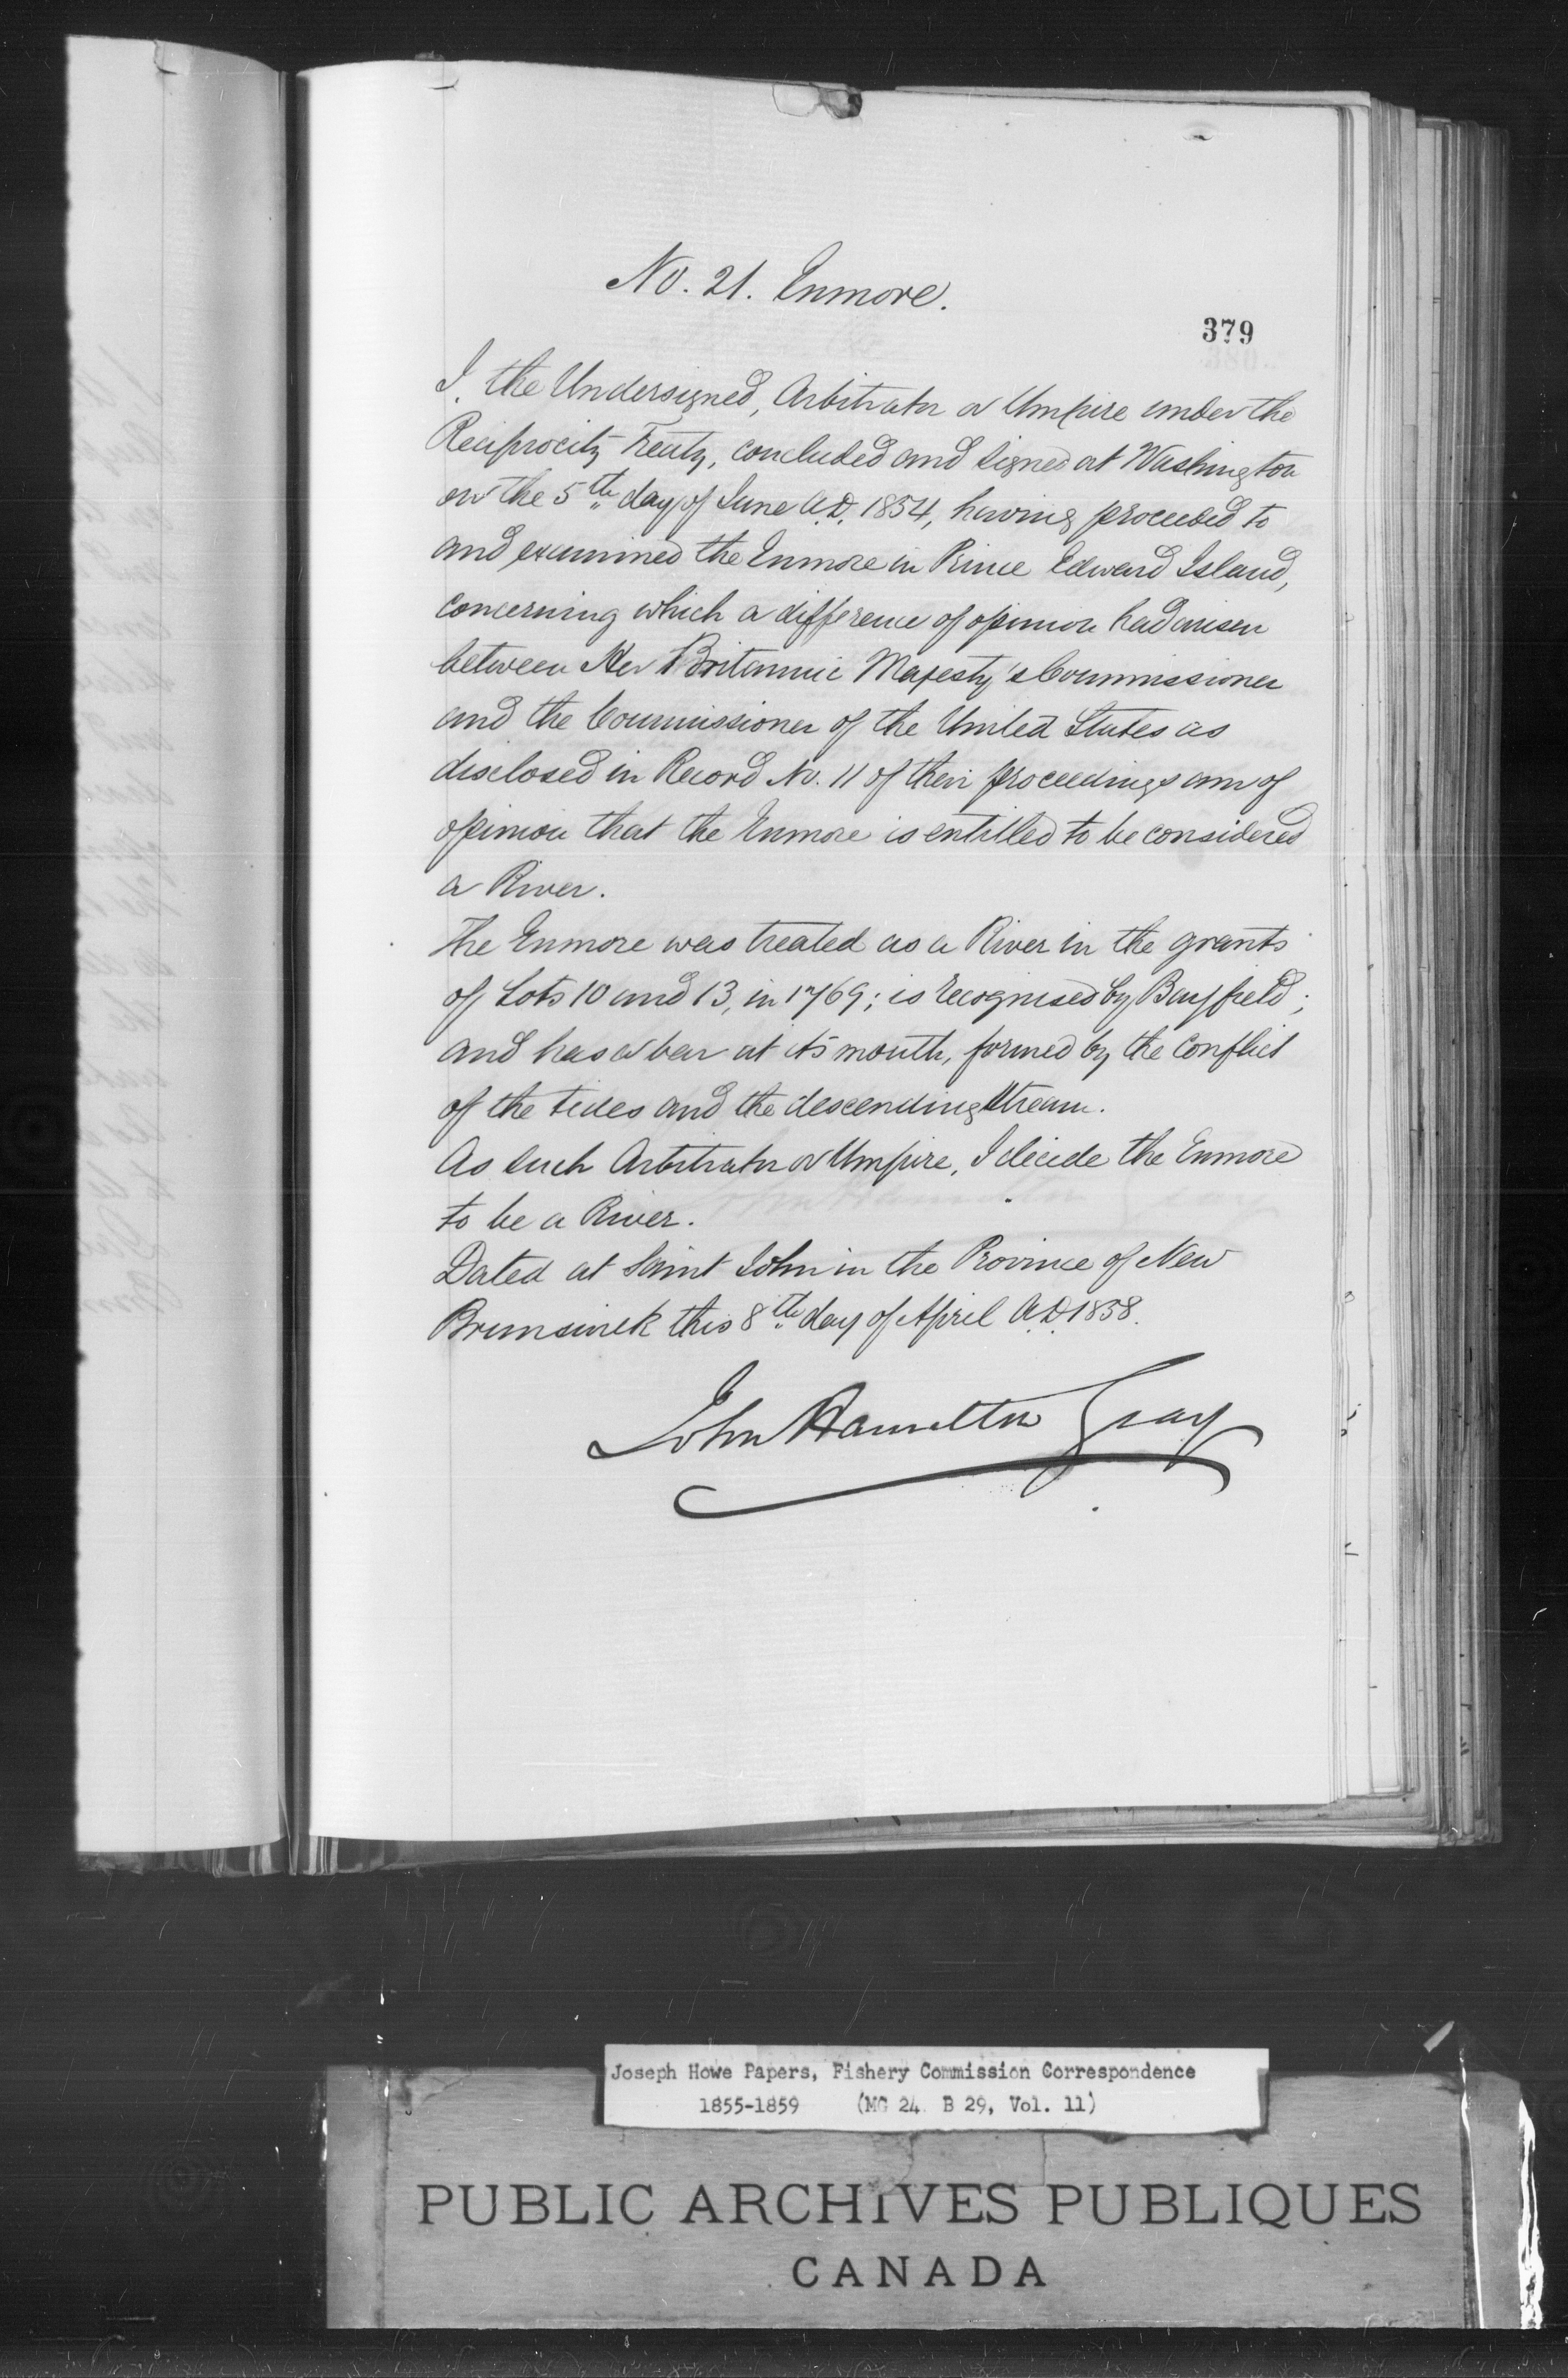 No. 21. Enmore.
379
I, the Undersigned, Arbitrator or Umpire under the
Reciprocity Treaty, concluded and signed at Washington
on the 5th day of June A.D. 1854, having proceeded to
and examined the Enmore in Prince Edward Island,
concerning which a difference of opinion had arisen
between Her Britannic Majesty's Commissioner
and the Commissioner of the United States as
disclosed in Record No. 11 of their proceedings am of
opinion that the Enmore is entitled to be considered
a River.
The Enmore was treated as a River in the grants
of Lots 10 and 13, in 1769; is recognised by Bayfield;
and has a bar at its mouth, formed by the conflict
of the tides and the descending stream.
As such Arbitrator or Umpire, I decide the Enmore
to be a River.
Dated at Saint John in the Province of New
Brunswick this 8th day of April A.D. 1858.
John Hamilton Gray
Joseph Howe Papers, Fishery Commission Correspondence
1855-1859 (MG 24 B 29, Vol. 11)
PUBLIC ARCHIVES PUBLIQUES
CANADA